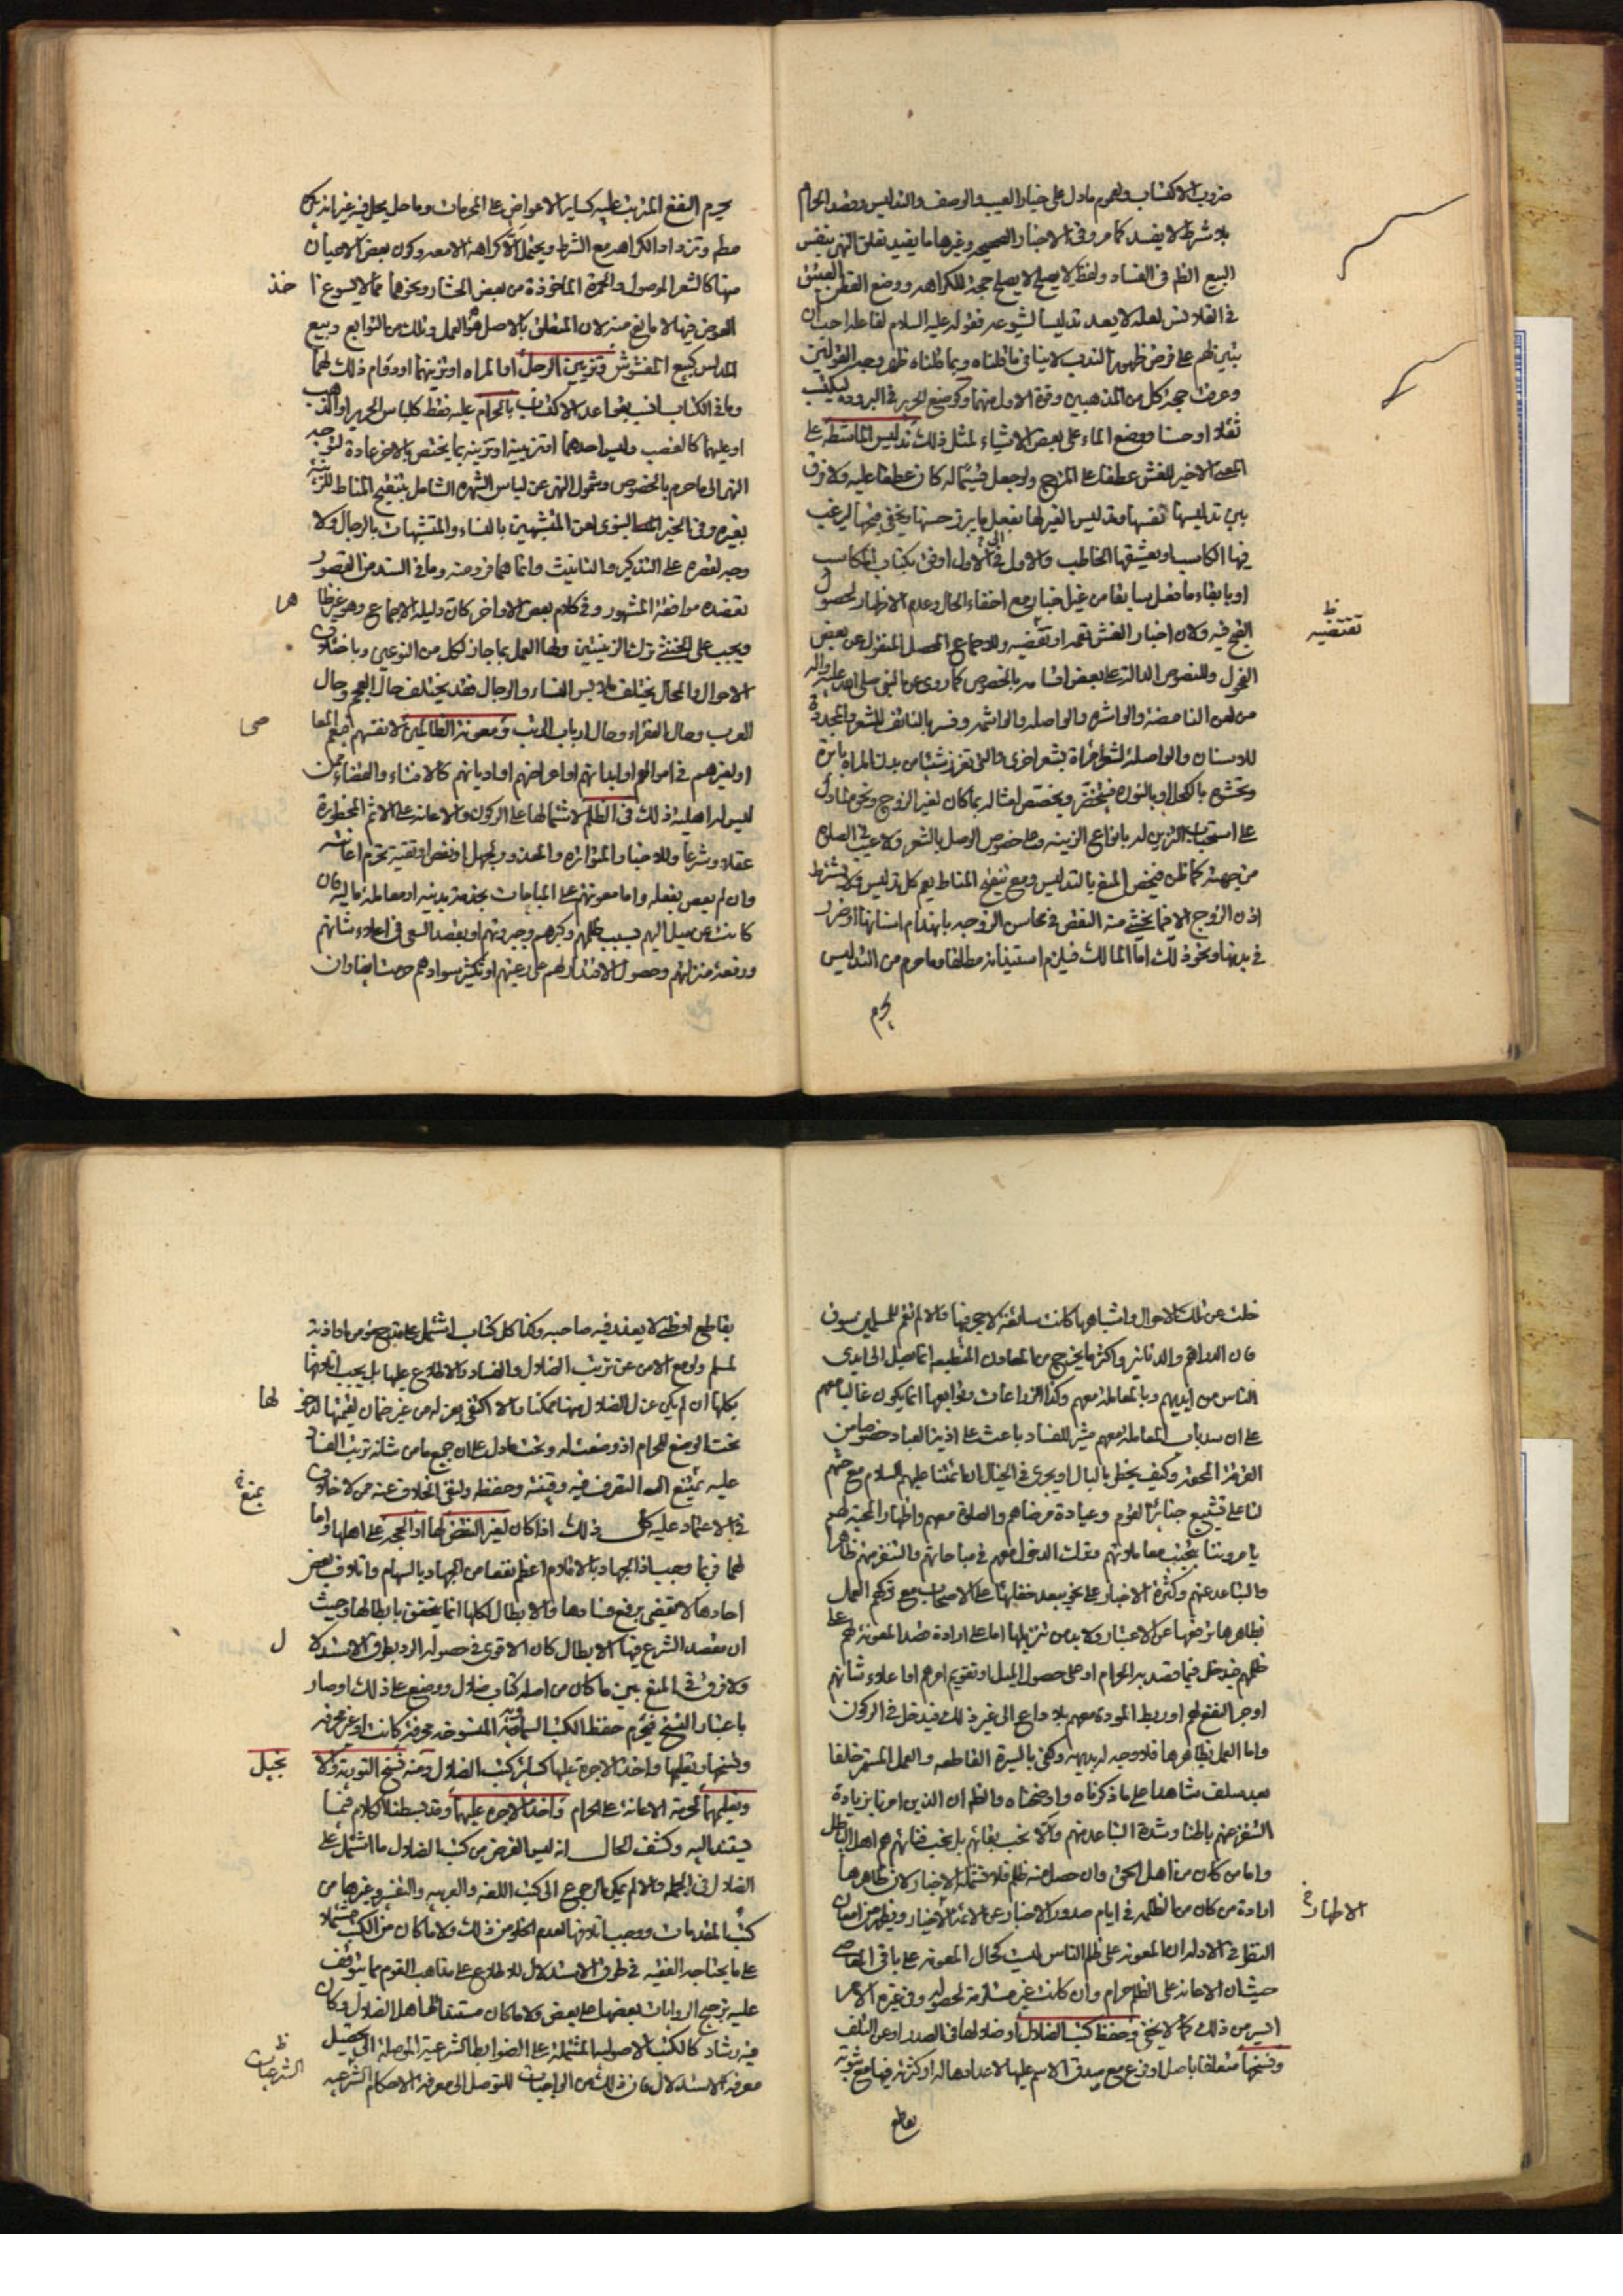 ضروب الاكتساب ولعموم مادل على خيار العيب والوصف والتدليس وقصد الحرام
بلا شرط لا يفسد كما مر وفى الاخبار الصحيحه وغيرها ما يفيد تعلق النهى بنفس
البيع الظ فى الفساد ولفظ لا يصلح لا يصلح حجة للكراهه ووضع القطن العتيق
فى القلانس لعله لا يعد تدليسا لشيوعه فقوله عليه السلام لفاعله احب ان
يبين لهم على فرض ظهوره فى الندب لا ينافى ما قلناه وبما قلناه ظهر وجه القولين
وعرفت حجة كل من المذهبين وقوة الاول منهما وكوضع الحرير فى البروده ليكتسب
ثقلا او حسنا ووضع الماء على بعض الاشياء لمثل ذلك تدليس الماشطة على
المعنى الاخير للغش عطفا على المزج ولو جعل قسيما له كان عطفا عليه ولا فرق
بين تدليسها نفسها وتدليس الغير لها بفعل ما يبرز حسنها ويخفى قبحها ليرغب
فيها الكاسب او يعشقها الخاطب والاول فى الاول اوفق بكتاب المكاسب
او بابقاء ما فعل سابقا من غير اخبار مع اخفاء الحال وعدم الاظهار لحصول
القبح فيه ولان اخبار الغش تعمه او تقضيه وللاجماع المحصل المنقول عن بعض
الفحول وللنصوص الدالة على بعض اقسامه بالخصوص كما روى عن النبى صلى الله عليه واله
من لعن النامصة والواشره والواصله والواشمه وفسر بالناتف للشعر والمحددة
للاسنان والواصلة لشعر امراة بشعر اخرى والتى تغرز شيئا من بدن المراة بابرة
وتحشوه بالكحل او بالنوره فيخضر ويختص امثاله بما كان لغير الزوج ونحوه لمادل
على استحباب التزين له بانواع الزينه وعلى خصوص الوصل بالشعر ولا عيب فى الصلوة
من جهته كما ظن فيخص المنع بالتدليس ومع تنقيح المناط يعم كل تدليس ولا يشترط
اذن الزوج الا فيما يخشى منه النقض فى محاسن الزوجه بانهدام اسنانها او ضرر
فى بدنها ونحو ذلك اما المالك فيلزم استيذانه مطلقا وما حرم من التدليس
يحرم
تقتضيه ظ
يحرم النفع المترتب عليه كساير الاعواض على المحرمات وما حل يحل فيه غير انه يكره
مطم وتزداد الكراهه مع الشرط ويحتمل الا كراهة الا معه وكون بعض الاحيان
منها كالشعر الموصول والحمرة الماخوذة من بعض الحشار ونحوهما مما لا يسوغ
خذ
العوض فيها لا مانع منه لان المتعلق بالاصل هو العمل وتلك من التوابع وبيع
المدلس كبيع المغشوش وتزيين الرجل او المراه او تزينهما او دوام ذلك لهما
وما فى الكتاب انسب بقواعد الاكتساب بالحرام عليه فقط كلباس الحرير او الذهب
او عليهما كالغصب وليس احدهما او تزيينه او تزينه بما يختص بالاخر عادة لتوجه
النهى الى ما حرم بالخصوص وشمول النهى عن لباس الشهره الشامل بتنقيح المناط للزينة
بغيره وفى الخبر النبوى لعن المتشبهين بالنساء والمتشبهات بالرجال ولا
وجه لقصره على التذكير والتانيث وانما هما فرد منه وما فى السند من القصور
تعضده موافقة المشهور وفى كلام بعض الاواخر كان دليله الاجماع وهو غير ظا
هر
ويجب على الخنثى ترك الزينتين ولها العمل بما جاز لكل من النوعين وباختلاف
الاحوال والمحال يختلف ملابس النساء والرجال فقد يختلف حال العجم وحال
العرب وحال القراء وحال ارباب الرتب ومعونة الظالمين لانفسهم بفعلهم المعا
صى
او لغيرهم فى اموالهم او ابدانهم او اعراضهم او اديانهم كالافتاء والقضاء ممن
ليس له اهلية ذلك فى الظلم لاشتمالها على الركون والاعانه على الاثم المحظورة
عقلا وشرعا وللاخبار المتواتره والمعذور بجهل او نقص او تقية تحرم اعانته
وان لم يعص بفعله واما معونتهم على المباحات بخدمة بدنيه او معاملة ماليه فان
كانت عن ميل اليهم بسبب ظلمهم وكبرهم وجبروتهم او بقصد السعى فى اعلاء شانهم
ورفعة منزلتهم وحصول الاقتدار لهم على رعيتهم او تكثير سوادهم حرمت ايضا وان
خلت عن تلك الاحوال واشباهها كانت سائغة لا حرج فيها والا لم تقم للمسلمين سوق
فان الدراهم والدنانير واكثر ما يخرج من المعادن المنطبعه انما تصل الى ايدى
الناس من ايديهم وبالمعاملة معهم وكذا الزراعات وتوابعها انما يكون غالبا معهم
على ان سد باب المعاملة معهم مثير للفساد باعث على اذية العباد خصوصا من
الفرقة المحقة وكيف يخطر بالبال او يجرى فى الخيال ان ائمتنا عليهم السلام مع حثهم
لنا على تشييع جنائز القوم وعيادة مرضاهم والصلوة معهم واظهار المحبة لهم
يامروننا بتجنب معاملتهم وترك الدخول معهم فى مباحاتهم والتنفر منهم ظاهرا
والتباعد عنهم وكثرة الاخبار على نحو يبعد خفاؤها على الاصحاب مع تركهم العمل
بظاهرها ترفعها عن الاعتبار ولا بد من تنزيلها اما على ارادة قصد المعونة لهم على
ظلمهم فيدخل فيما قصد به الحرام او على حصول الميل او تقويم امرهم او اعلاء شانهم
او جر النفع لهم او ربط المودة معهم بلا داع الى غير ذلك فيدخل فى الركون
واما العمل بظاهرها فلا وجه له بديهة وكفى بالسيرة القاطعه والعمل المستمر خلفا
بعد سلف شاهدا على ما ذكرناه واوضحناه والظ ان الذين امرنا بزيادة
التنفر عنهم باطنا وشدة التباعد منهم وان لا نحب بقائهم بل نحب فنائهم هم اهل الباطل
واما من كان من اهل الحق وان حصل منه ظلم فلا تشمله الاخبار لان ظاهرها
ارادة من كان من الظلمه فى ايام صدور الاخبار عن الائمة الاخيار ويظهر من امعان
الاطهار خ
النظر فى الادله ان المعونه على ظلم الناس ليست كحال المعونه على باقى المعاصى
حيث ان الاعانه على الظلم حرام وان كانت غير مستلزمة لحصوله وفى غيره الامر
ايسر من ذلك كما لا يخفى وحفظ كتب الضلال او ضلولها فى الصدر او عن التلف
ونسخها متعلقا باصل او فرع مع صدق الاسم عليها لاعدادها له او كثرته فيها مع ثبوته
بقاطع
بقاطع او ظنى لا يعذر فيه صاحبه وكذا كل كتاب اشتمل على قدح مومن او اذية
لمسلم ولو مع الامن عن ترتب الضلال والفساد والاطلاع عليها بل يجب اتلافها
بكلها ان لم يكن عزل الضلال منها ممكنا والا اكتفى بعزله من غير ضمان لقيمتها لدخو
لها
تحت الوضع للحرام اذ وضعت له وتحت مادل على ان جميع ما من شانه ترتب الفساد
عليه يمتنع التصرف فيه وقنيته وحفظه ولنفى الخلاف عنه ممن لا خلاف
يمنع خ
فى الاعتماد عليه كل ذلك اذا كان لغير النقض لها او الحجه على اهلها واما
لهما فربما وجب اذ الجهاد بالاقلام اعظم نفعا من الجهاد بالسهام واتلاف بعض
احادها لا يقضى برفع فسادها والابطال لكلها انما يتحقق بابطالها وحيث
ان مقصد الشرع فيها الابطال كان الاقوى فى حصوله الرد بطرق الاستدلا
ل
ولا فرق فى المنع بين ما كان من اصله كتاب ضلال ووضع على ذلك او صار
باعتبار النسخ فيحرم حفظ الكتب السماوية المنسوخه محرفة كانت او غير محرفه
ونسخها وتعليمها واخذ الاجرة عليها كساير كتب الضلال ومنه نسخ التورية والا
نجيل
وتعليمها لحرمة الاعانة على الحرام واخذ الاجره عليها وقد بسطنا الكلام فيما
يستند اليه وكشف الحال انه ليس الغرض من كتب الضلال ما اشتمل على
الضلال فى الجمله والا لم يمكن الرجوع الى كتب اللغه والعربيه والتفسير وغيرها من
كتب المقدمات ووجب اتلافها لعدم الخلو من ذلك ولا ما كان من الكتب مشتملا
على ما يحتاجه الفقيه فى طرق الاستدلال للاطلاع على مذاهب القوم مما يتوقف
عليه ترجيح الروايات بعضها على بعض ولا ما كان مستندا لها اهل الضلال وكان
فيه رشاد كالكتب الاصوليه المشتملة على الضوابط الشرعية الموصلة الى تحصيل
الشرعيات ظ
معرفة الاستدلال فان ذلك من الواجبات للتوصل الى معرفة الاحكام الشرعيه